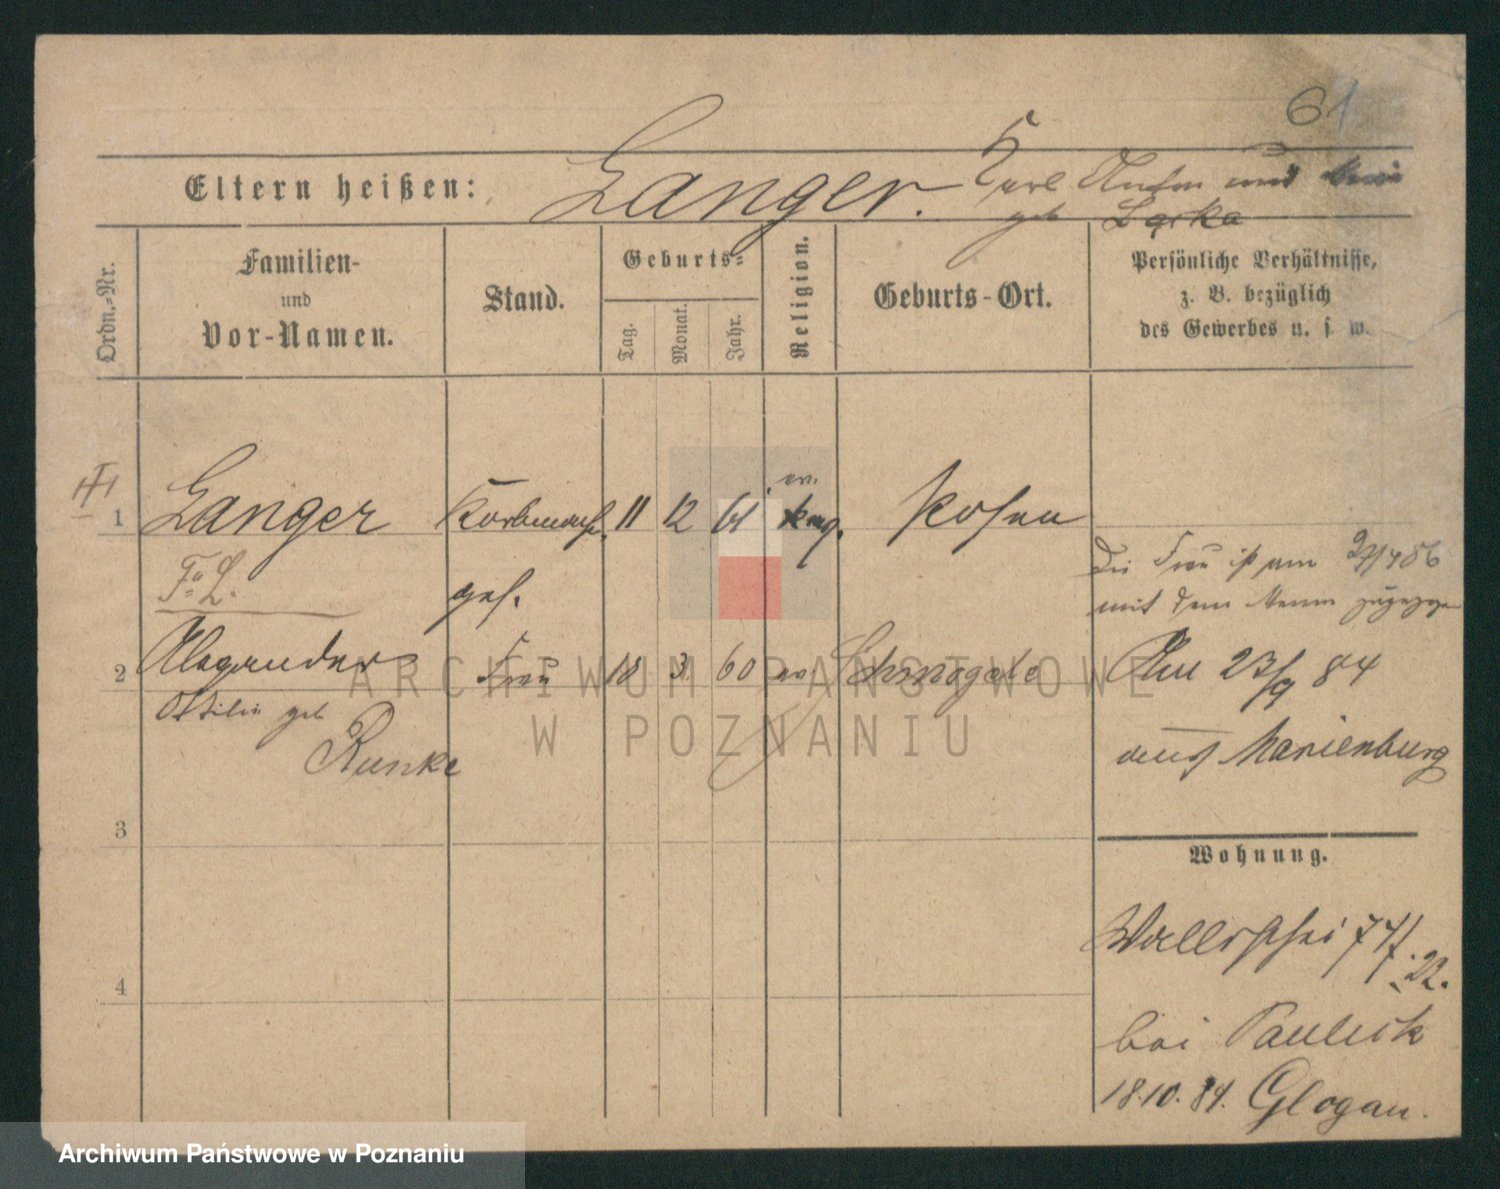 61
Eltern heißen: Langer. Karl Anton und
geb Lqrka
Ordn.-Nr.
Familien-
und
Vor-Namen.
Stand.
Geburts-
Tag.
Monat.
Jahr.
Religion.
Geburts-Ort.
Persönliche Verhältnisse,
z. B. bezüglich
des Gewerbes u. s. w.
ev.
1 Langer Korbmach. 11 12 61 Posen
Fr. L. ges.
Die Frau ist am 27/4 86
mit dem Mann zugezogen
2 Alexander Frau 18 3 60 ev Schmogele
Ottilie geb
Runke
Am 23/9 84
aus Marienburg
3
Wohnung.
4
Wallischei 74/
22.
bei Paulick
18.10.84. Glogau.
ARCHIWUM PAŃSTWOWE
W POZNANIU
Archiwum Państwowe w Poznaniu